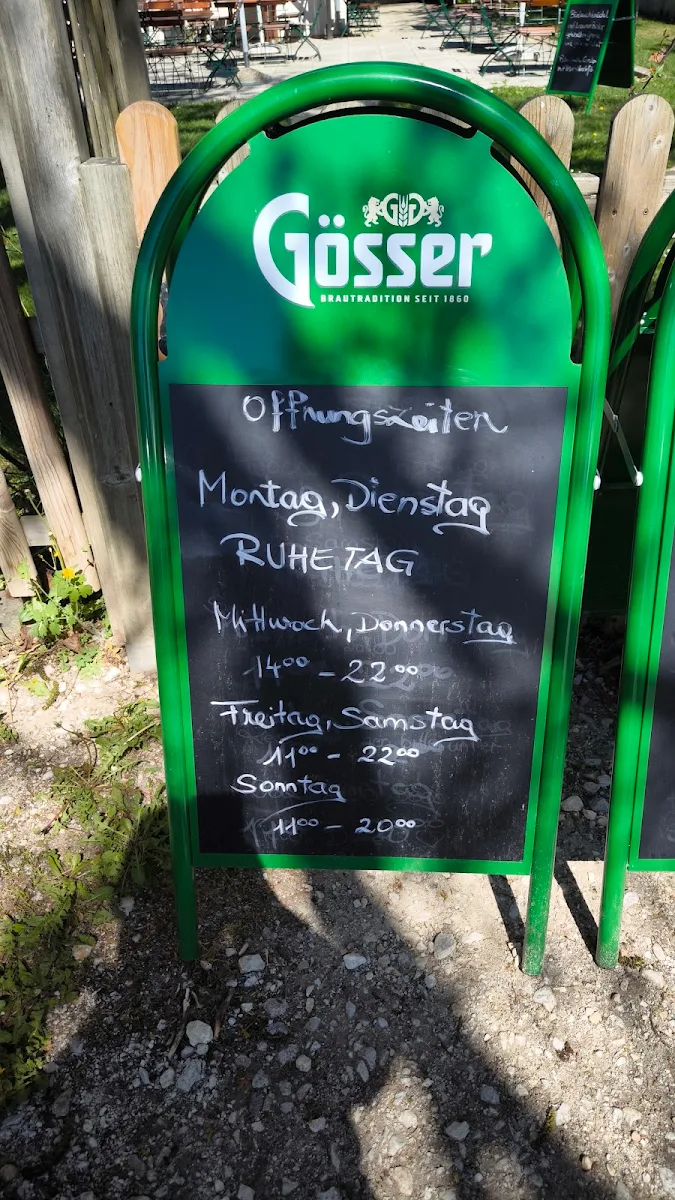 Gösser
BRAUTRADITION SEIT 1860
Öffnungszeiten
Montag, Dienstag
RUHETAG
Mittwoch, Donnerstag
14⁰⁰ - 22⁰⁰
Freitag, Samstag
11⁰⁰ - 22⁰⁰
Sonntag
11⁰⁰ - 20⁰⁰